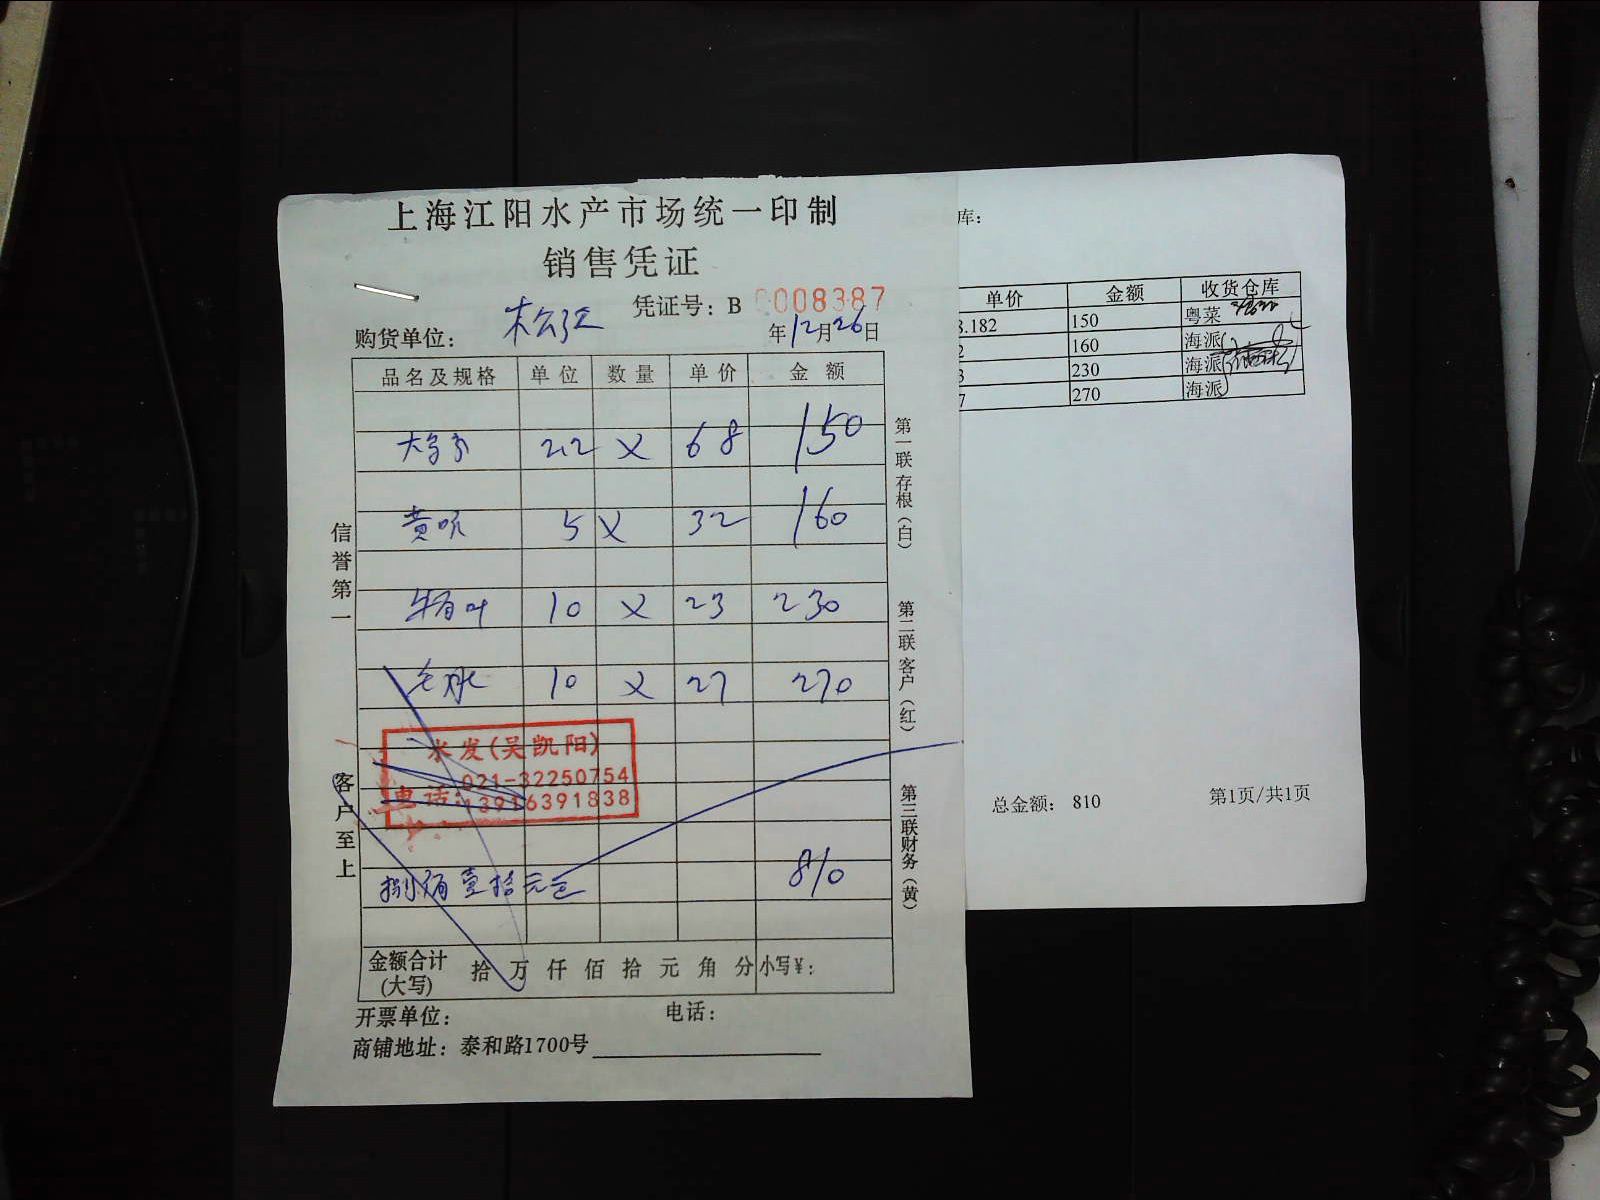 上海江阳水产市场统一印制
销售凭证
凭证号：B 0008387
购货单位： 松江
年12月26日
品名及规格 单位 数量 单价 金额
2.2 × 68 150
黄 5 × 32 160
牛百叶 10 × 23 230
毛水 10 × 27 270
水发(吴凯阳)
021-32250754
电话:13916391838
捌佰壹拾元 810
金额合计(大写) 拾 万 仟 佰 拾 元 角 分 小写￥：
开票单位： 电话：
商铺地址：泰和路1700号
信誉第一
客户至上
第一联存根(白)
第二联客户(红)
第三联财务(黄)
库:
单价 金额 收货仓库
8.182 150 粤菜
2 160 海派
3 230 海派
7 270 海派
总金额： 810 第1页/共1页